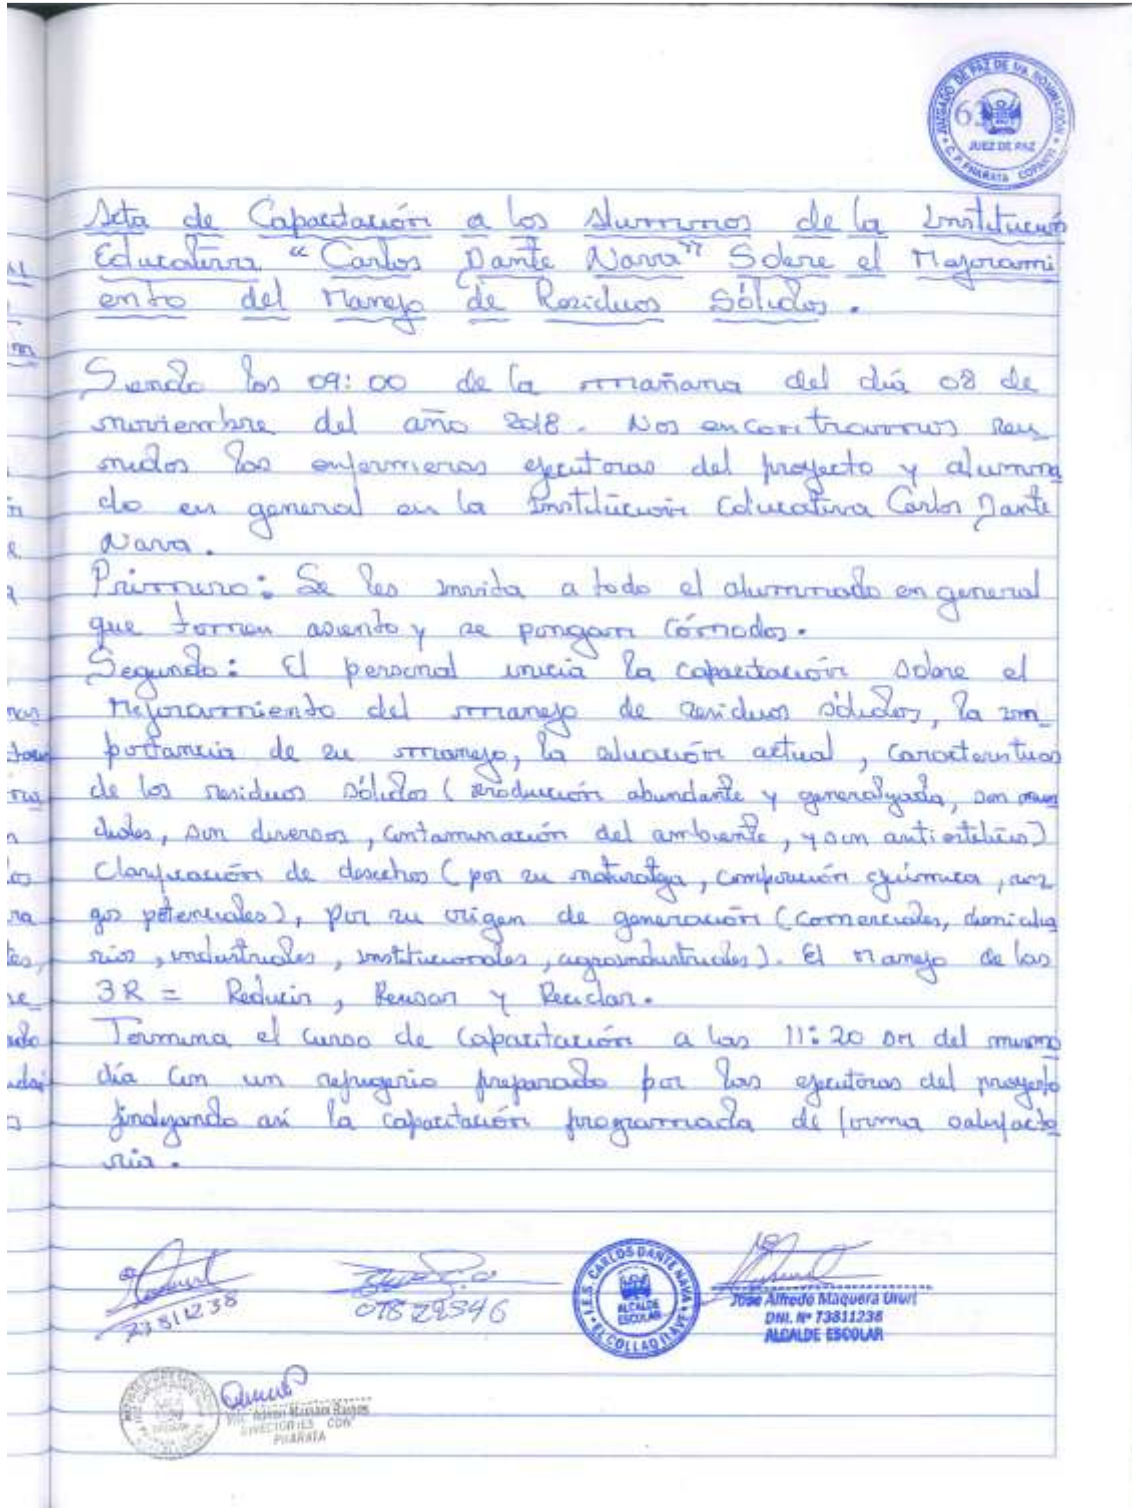 JUZGADO DE PAZ DE 1RA. NOMINACIÓN
63
JUEZ DE PAZ
C.P. PHARATA COPANI
Acta de Capacitación a los Alumnos de la Institución
Educativa "Carlos Dante Nava" Sobre el Mejorami
ento del Manejo de Residuos Sólidos.
Siendo las 09:00 de la mañana del día 08 de
noviembre del año 2018. Nos encontramos reu
nidos las enfermeras ejecutoras del proyecto y alumna
do en general en la Institución Educativa Carlos Dante
Nava.
Primero: Se les invita a todo el alumnado en general
que tomen asiento y se pongan cómodos.
Segundo: El personal inicia la capacitación sobre el
Mejoramiento del manejo de residuos sólidos, la im
portancia de su manejo, la situación actual, caracteristicas
de los residuos sólidos (producción abundante y generalizada, son
diversos, contaminación del ambiente, y son antiestético)
Clasificación de desechos (por su naturaleza, composición química, ries
gos potenciales), por su origen de generación (comerciales, domicilia
rios, industriales, institucionales, agroindustriales). El manejo de las
3R = Reducir, Reusar y Reciclar.
Termina el curso de capacitación a las 11:20 am del mismo
día con un refrigerio preparado por las ejecutoras del proyecto
finalizando así la capacitación programada de forma satisfacto
ria.
73811238
01822946
I.E.S. CARLOS DANTE NAVA
ALCALDE
ESCOLAR
EL COLLAO ILAVE
Jose Alfredo Maquera
DNI. Nº 73811238
ALCALDE ESCOLAR
DIRECTOR IES "CDN"
PHARATA